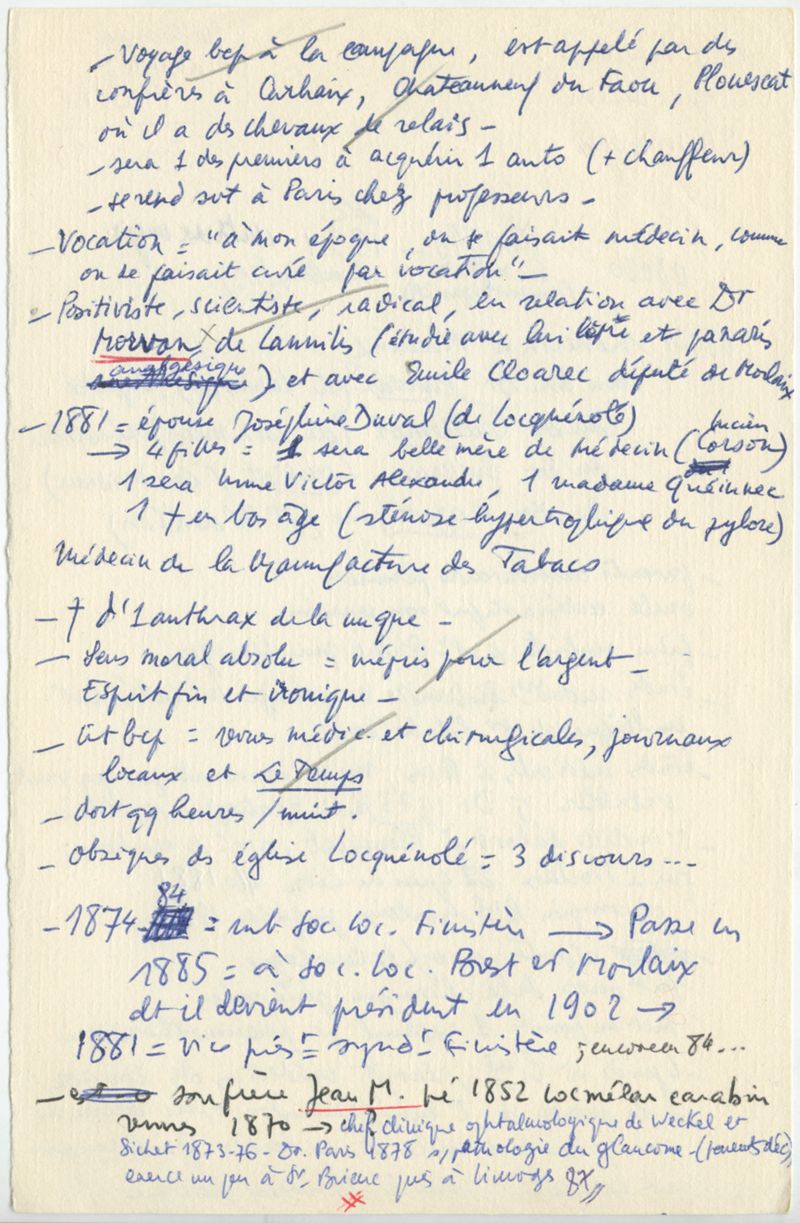 - Voyage bcp à la campagne, est appelé par des
confrères à Carhaix, Chateauneuf du Faou, Plouescat
où il a des chevaux de relais -
- sera 1 des premiers à acquérir 1 auto (+ chauffeur)
- se rend svt à Paris chez professeurs -
- Vocation = "à mon époque, on se faisait médecin, comme
on se faisait curé par vocation" -
- Positiviste, scientiste, radical, en relation avec Dr
Morvan x de Lannilis (étudie avec lui lèpre et panaris
analgésique) et avec Emile Cloarec député de Morlaix
- 1881 = épouse Joséphine Duval (de Locquénolé)
→ 4 filles = 1 sera belle mère de Médecin (Lucien Corson)
1 sera Mme Victor Alexandre, 1 madame Quéinnec
1 † en bas âge (sténose hypertrophique du pylore)
Médecin de la Manufacture des Tabacs
- † d'1 anthrax de la nuque -
- Sens moral absolu = mépris pour l'argent -
Esprit fin et ironique -
- Lit bcp = revues médic. et chirurgicales, journaux
locaux et Le Temps
- dort qq heures / nuit.
- Obsèques ds église Locquénolé = 3 discours...
- 1874-84 = mb Soc. Loc. Finistère → Passe en
1885 = à Soc. Loc. Brest et Morlaix
dt il devient président en 1902 →
1881 = vice prést = syndt Finistère ; encore en 84...
- son frère Jean M. né 1852 Locmélar carabin
rennes 1870 → chef clinique ophtalmologique de Weckel et
Sichet 1873-76 - Dr. Paris 1878 s/ étiologie du glaucome - (parents déc)
exerce un peu à St. Brieuc puis à Limoges